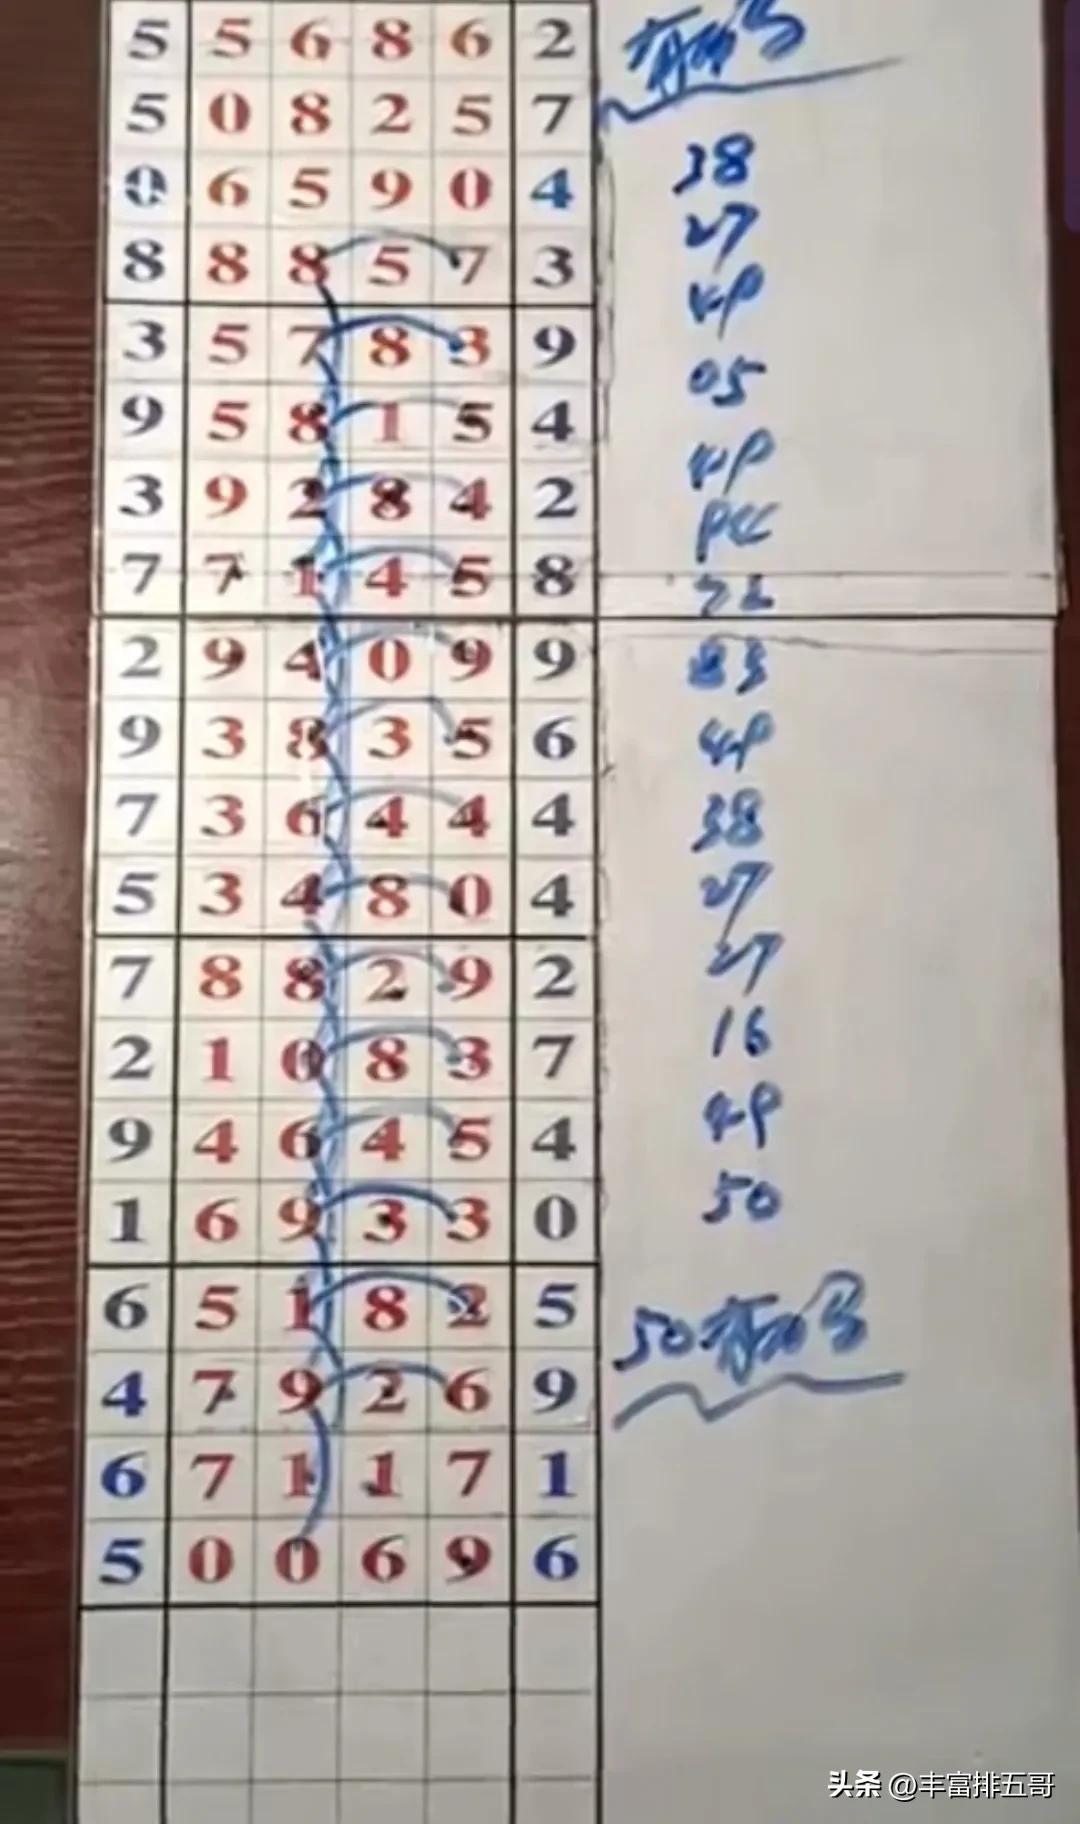 5 5 6 8 6 2
5 0 8 2 5 7
0 6 5 9 0 4
38
8 8 8 5 7 3
27
3 5 7 8 3 9
49
9 5 8 1 5 4
05
3 9 2 8 4 2
49
7 7 1 4 5 8
2 9 4 0 9 9
83
9 3 8 3 5 6
49
7 3 6 4 4 4
38
5 3 4 8 0 4
27
7 8 8 2 9 2
27
2 1 0 8 3 7
16
9 4 6 4 5 4
49
1 6 9 3 3 0
50
6 5 1 8 2 5
50
4 7 9 2 6 9
6 7 1 1 7 1
5 0 0 6 9 6
头条 @丰富排五哥